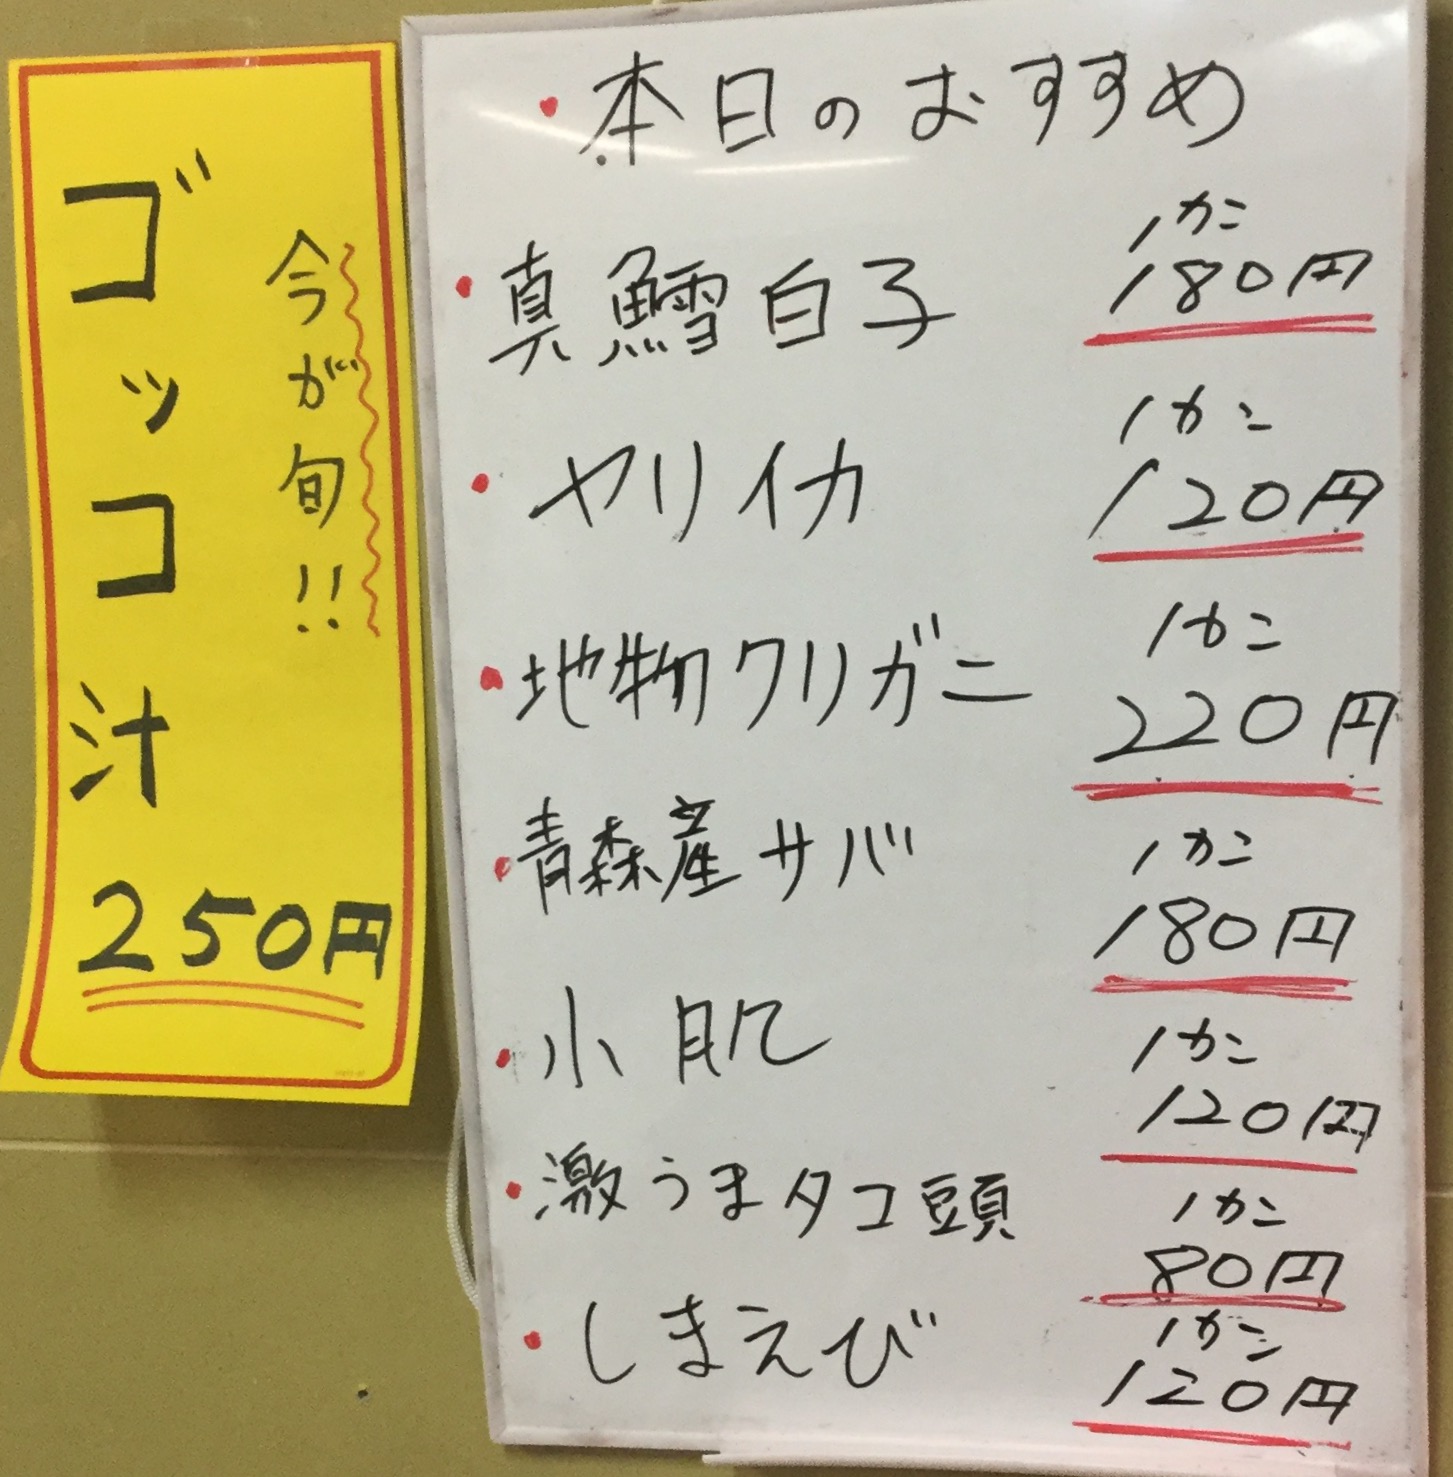 ゴッコ汁
今が旬!!
250円
・本日のおすすめ
・真鱈白子
1カン
180円
・ヤリイカ
1カン
120円
・地物クリガニ
1カン
220円
・青森産サバ
1カン
180円
・小肌
1カン
120円
・激うまタコ頭
1カン
80円
・しまえび
1カン
120円